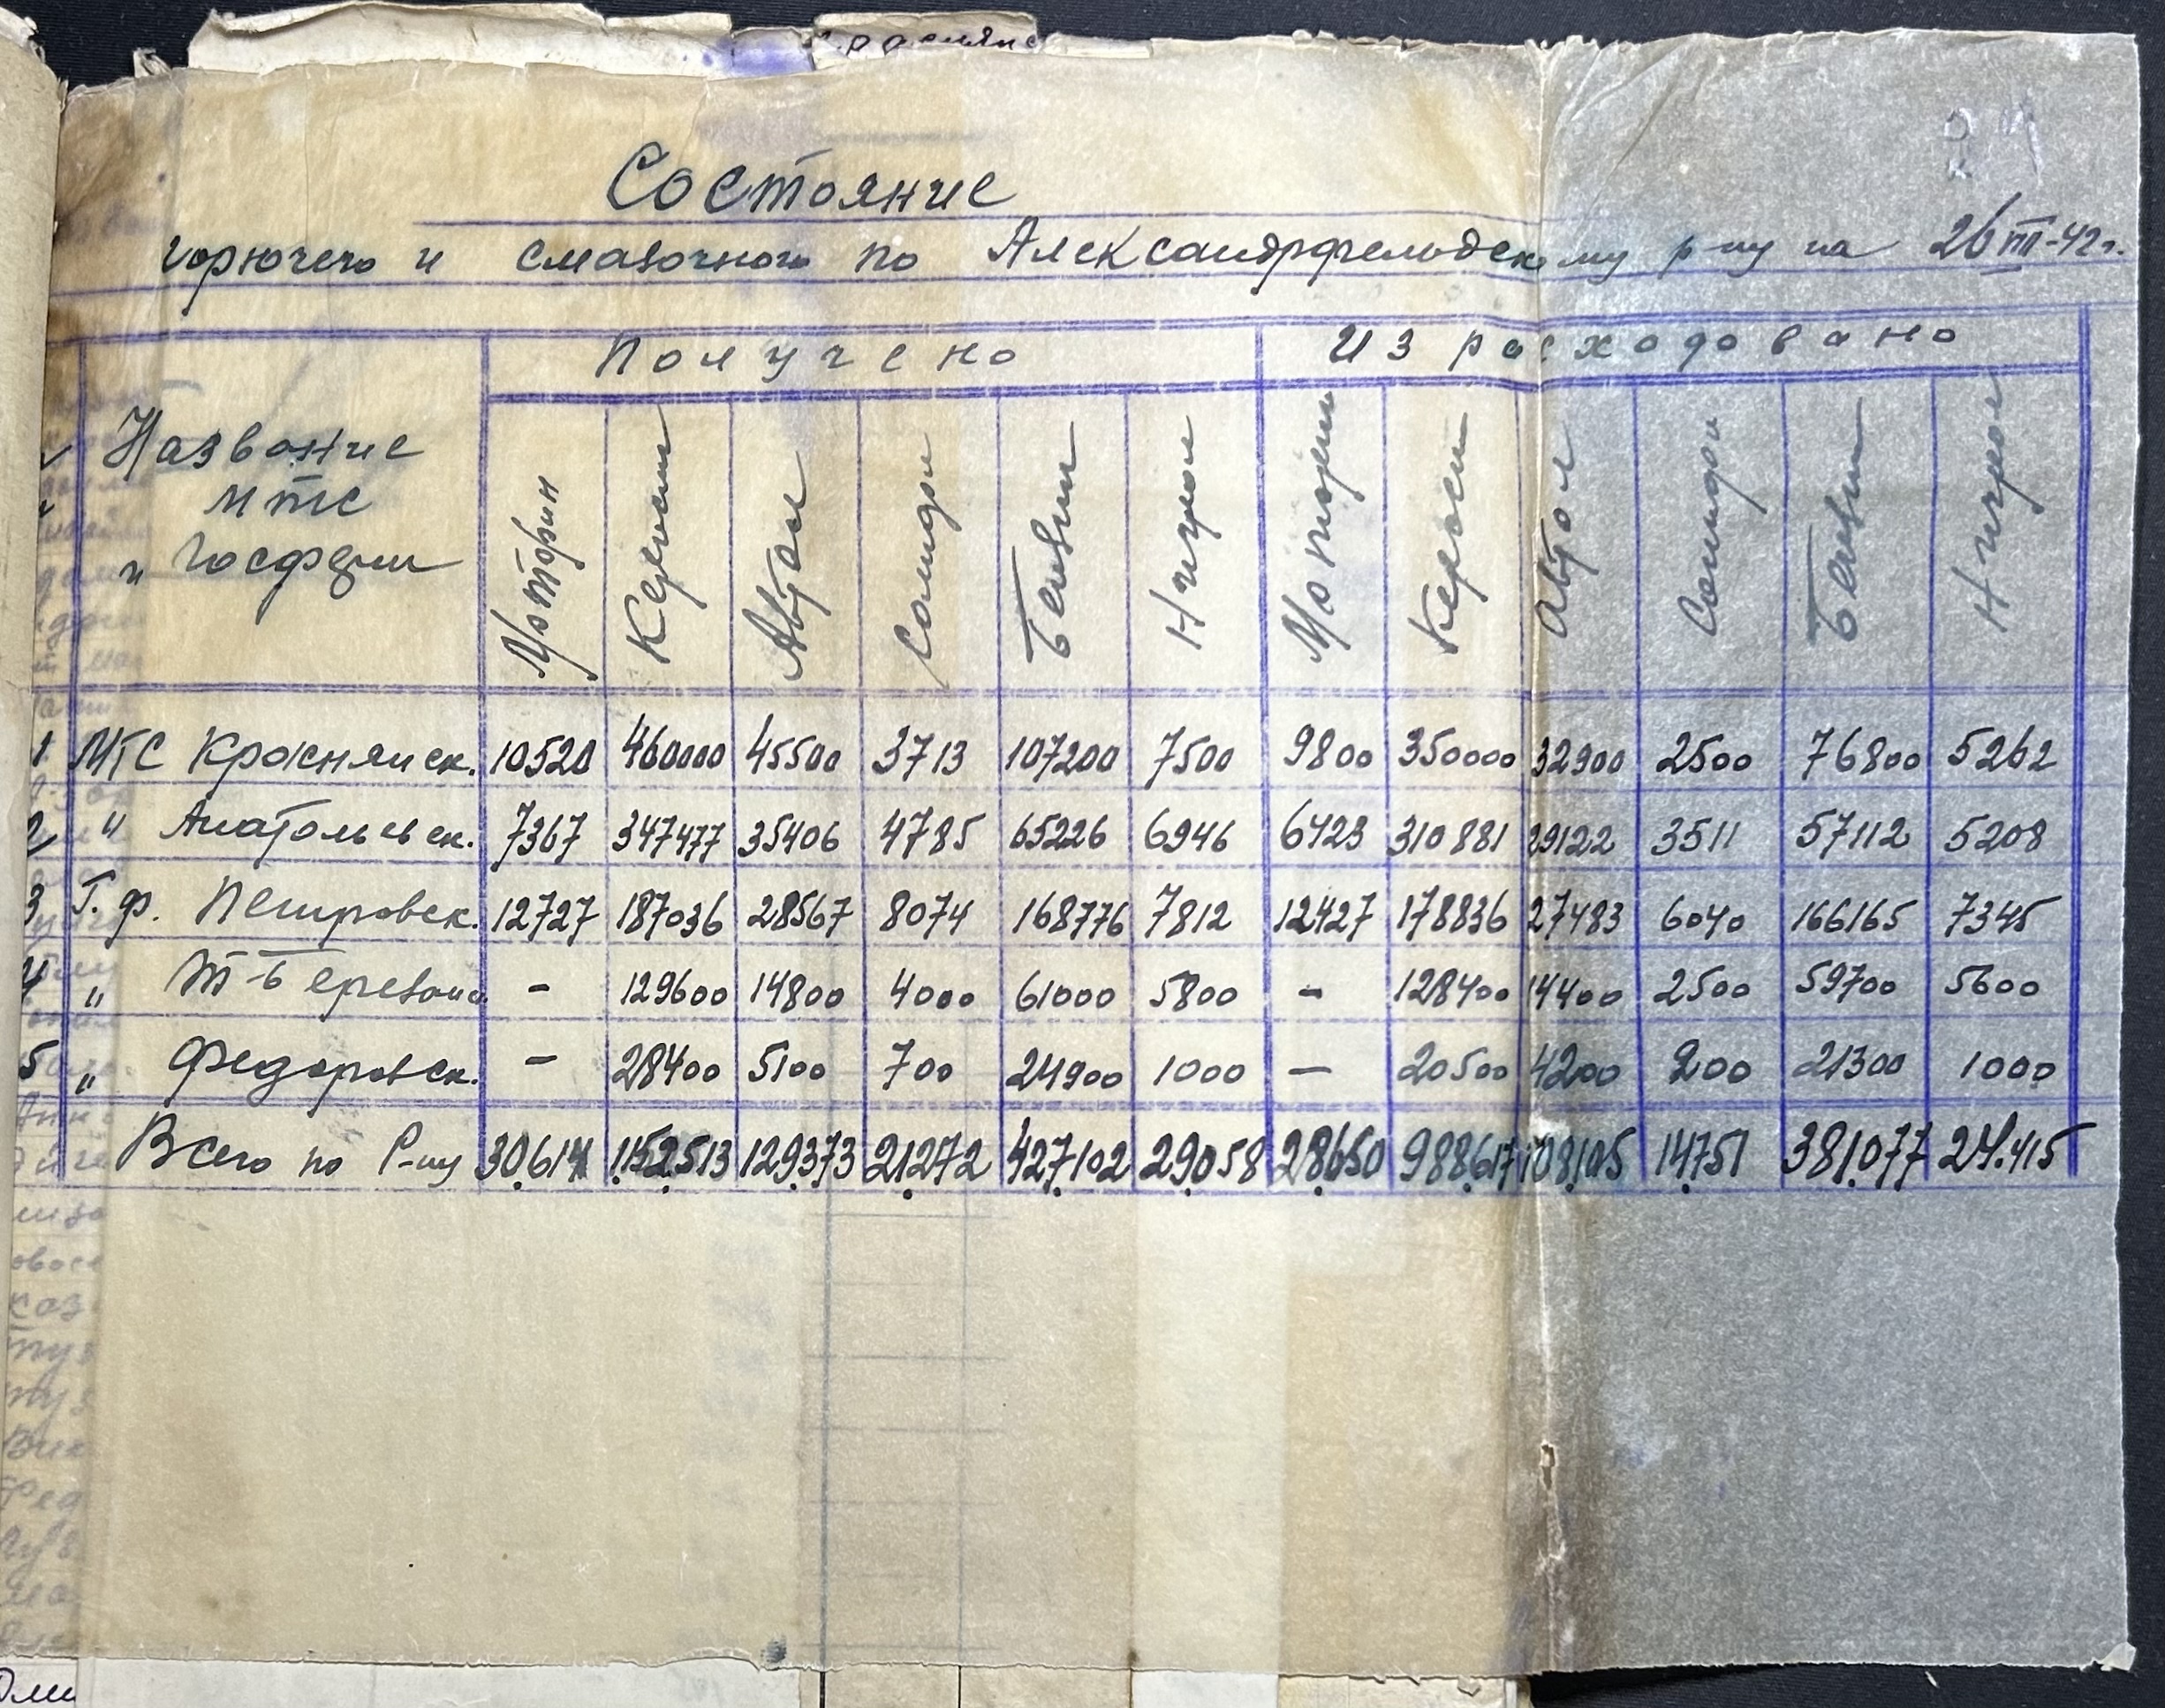 Состояние
горючего и смазочного по Александрфельдскому р-ну на 26 III-42 г.
Название МТС и Госферм | Получено | Израсходовано
Моторин | Керосин | Автол | Солидол | Бензин | Нигрол | Моторин | Керосин | Автол | Солидол | Бензин | Нигрол
1 МТС Краснянск. 10520 460000 45500 3713 107200 7500 9800 350000 32900 2500 76800 5262
2 " Анатольевск. 7367 347477 35406 4785 65226 6946 6423 310881 29122 3511 57112 5208
3 Г. ф. Петровск. 12727 187036 28567 8074 168776 7812 12427 178836 27483 6040 166165 7345
4 " Т-Березан. - 129600 14800 4000 61000 5800 - 128400 14400 2500 59700 5600
5 " Федоровск. - 28400 5100 700 24900 1000 - 20500 4200 200 21300 1000
Всего по Р-ну 30.614 1.152.513 129.373 21.272 427.102 29.058 28.650 988.617 108.105 14.751 381.077 24.415